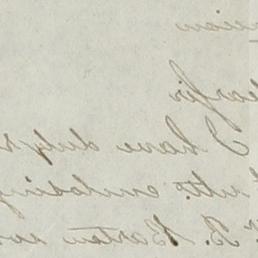 ear Sir
I have duly
ult. enclosing
B. Barton